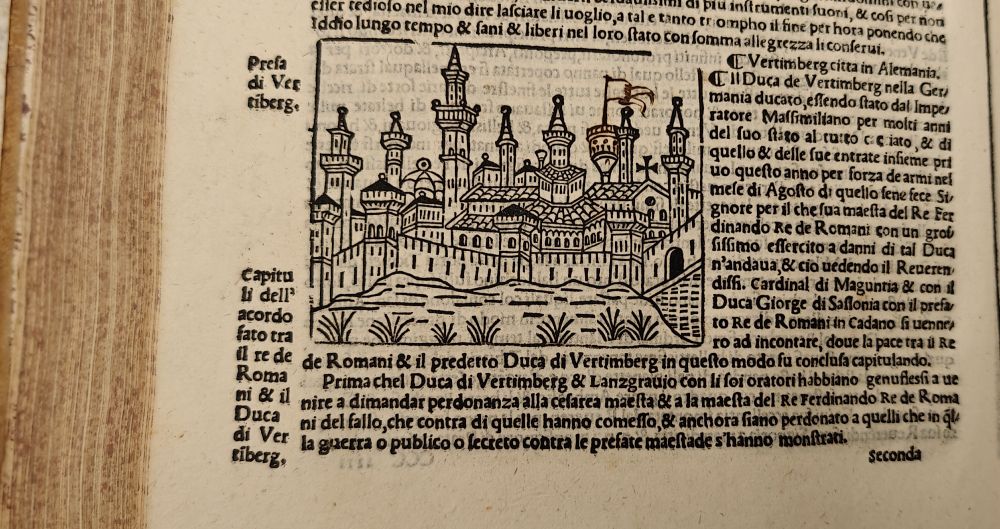 esser tedioso nel mio dire lasciare li uoglio, a tal e tanto triompho il fine per hora ponendo che
Iddio lungo tempo & sani & liberi nel loro stato con somma allegrezza li conserui.
Presa
di Ver
tiberg.
¶ Vertimberg citta in Alemania.
¶ Il Duca de Vertimberg nella Ger-
mania ducato, essendo stato dal Impe-
ratore Massimiliano per molti anni
del suo stato al tutto cciato, & di
quello & delle sue entrate insieme pri
uo questo anno per forza de armi nel
mese di Agosto di quello sene fece Si-
gnore per il che sua maesta del Re Fer
dinando Re de Romani con un gros
sissimo essercito a danni di tal Duca
n'andaua, & cio uedendo il Reueren-
diss. Cardinal di Maguntia & con il
Duca Giorge di Sassonia con il prefa-
to Re de Romani in Cadano si uenne-
ro ad incontare, doue la pace tra il Re
de Romani & il predetto Duca di Vertimberg in questo modo fu conclusa capitulando.
Capitu
li dell'
acordo
fato tra
il re de
Roma
ni & il
Duca
di Ver
tiberg.
Prima chel Duca di Vertimberg & Lanzgrauio con li soi oratori habbiano genuflessi a ue
nire a dimandar perdonanza alla cesarea maesta & a la maesta del Re Ferdinando Re de Roma
ni del fallo, che contra di quelle hanno comesso, & anchora siano perdonato a quelli che in q̃l-
la guerra o publico o secreto contra le prefate maestade s'hanno monstrati.
Seconda